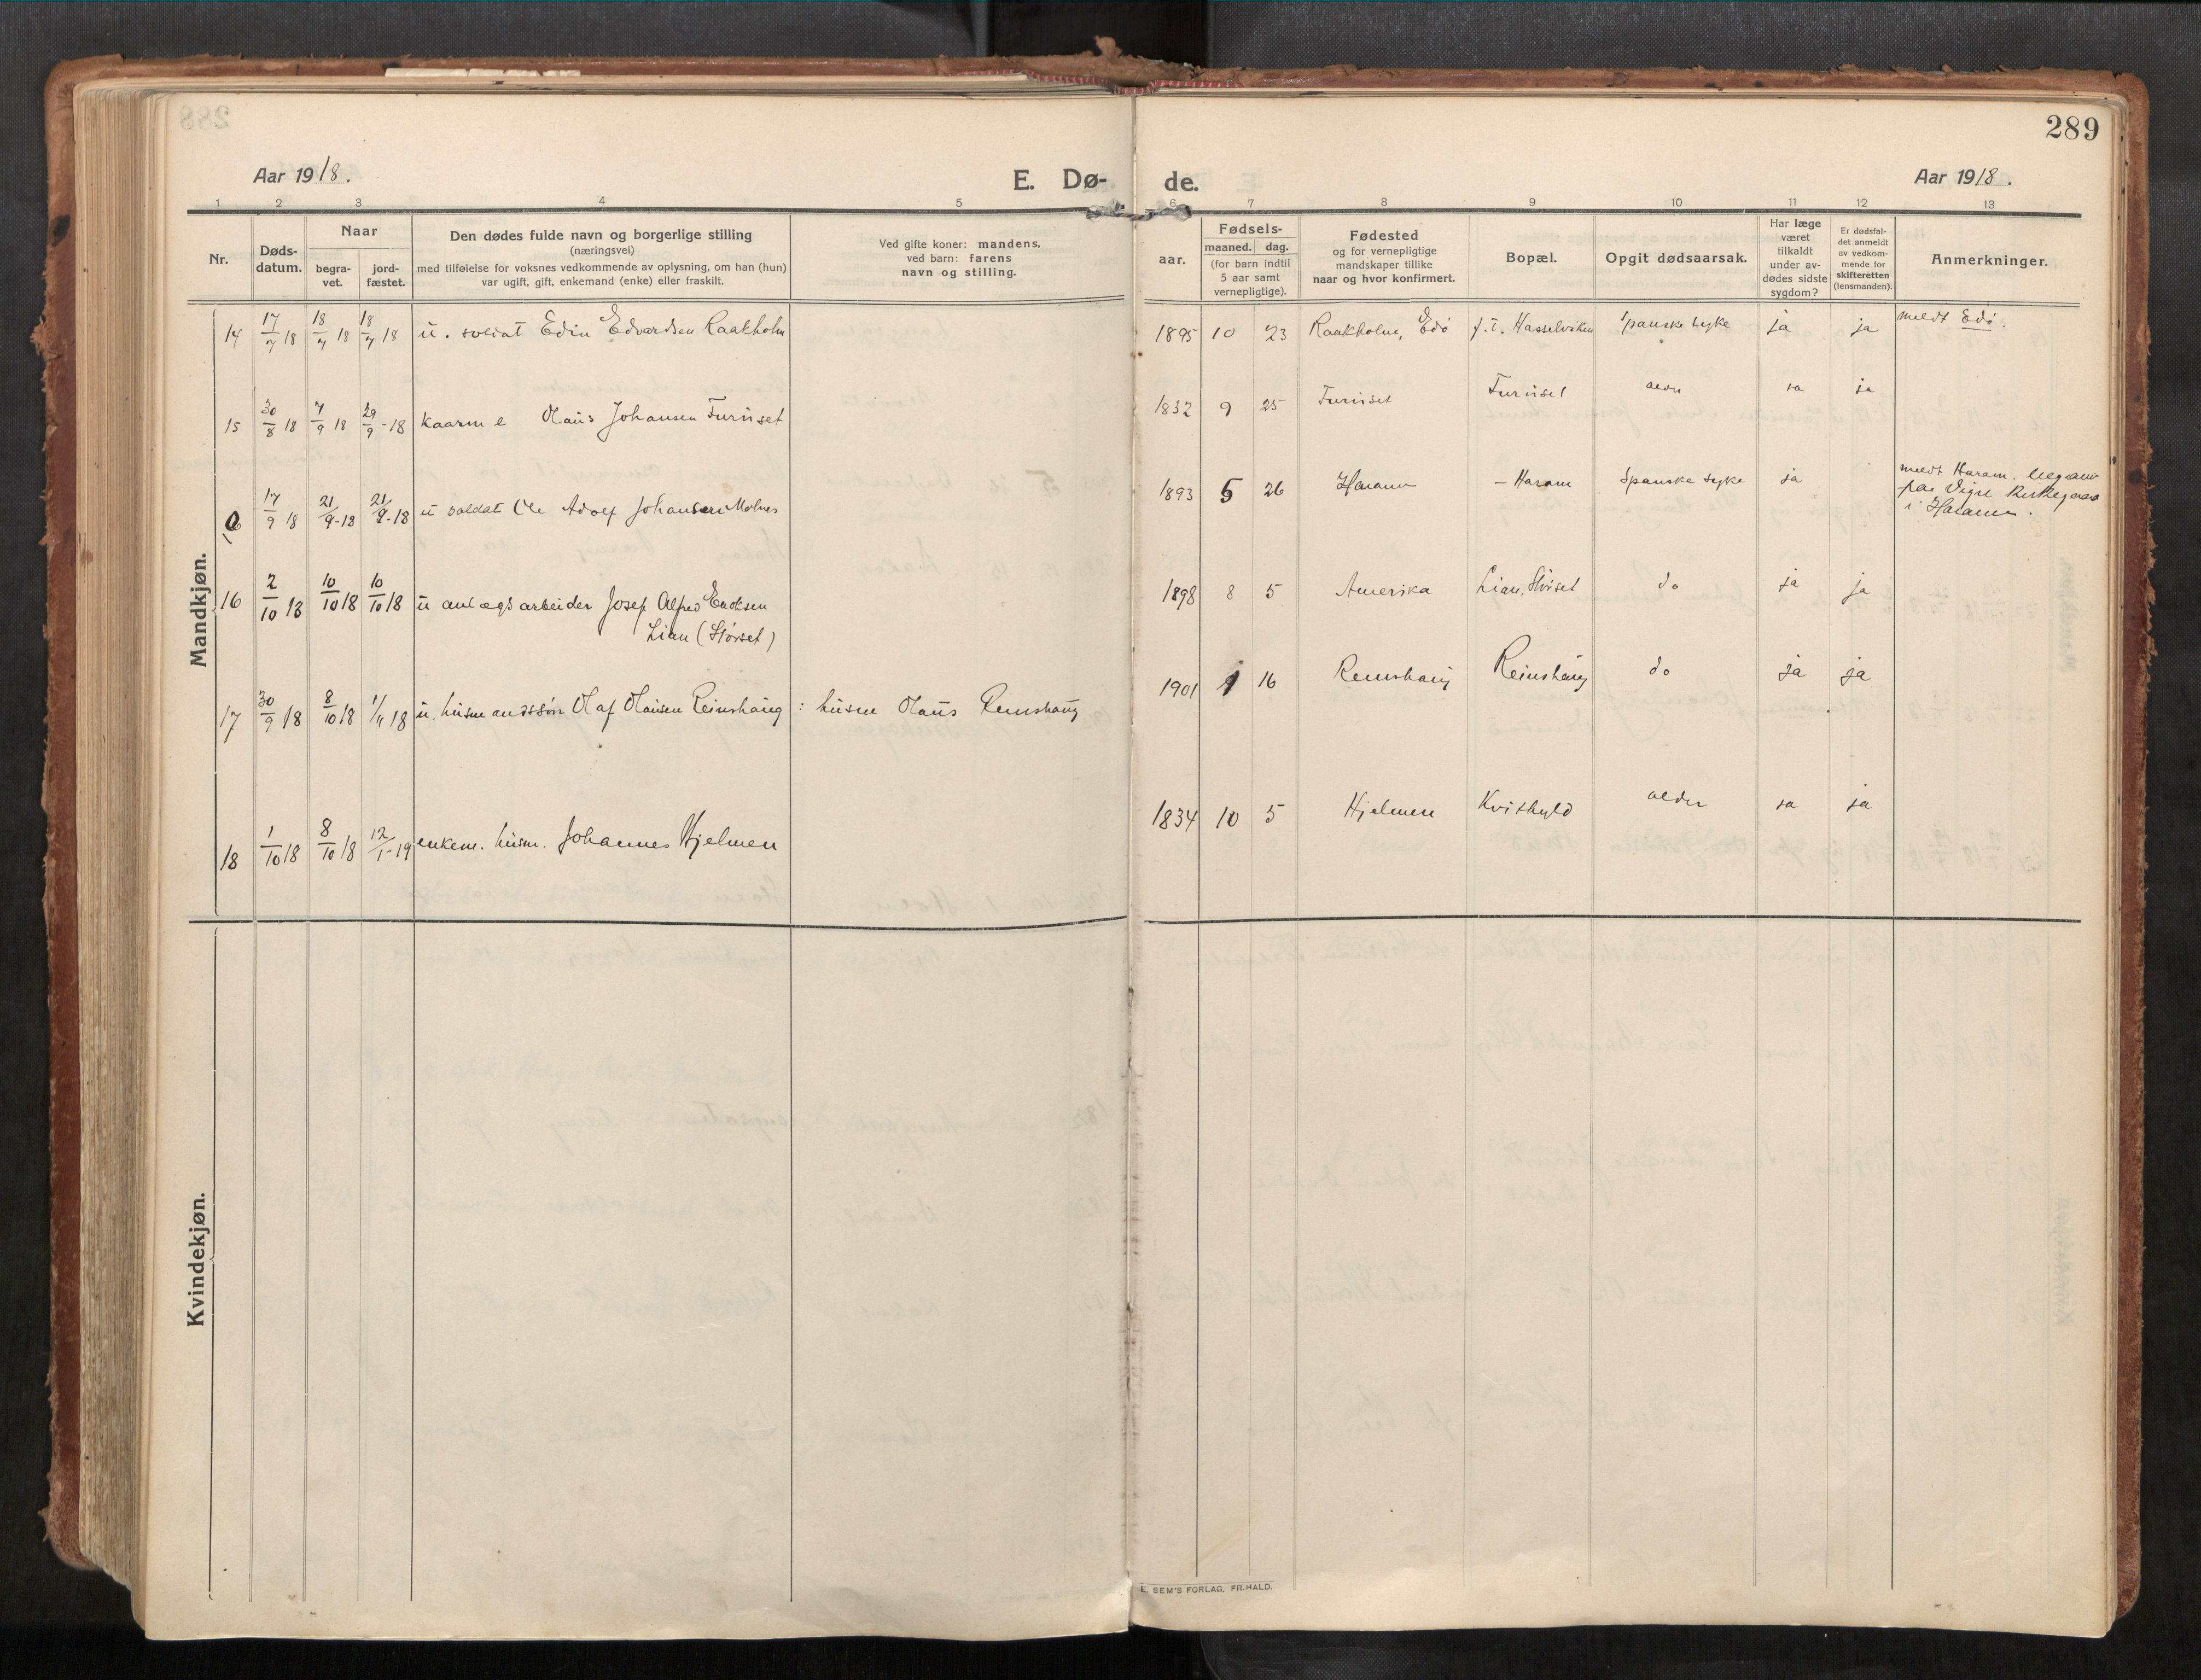 289
Aar 1918.
E. Dø-
de.
Aar 1918.
1 2 3 4 5 6 7 8 9 10 11 12 13
Nr.
Døds-
datum.
Naar
begra-
vet.
jord-
fæstet.
Den dødes fulde navn og borgerlige stilling
(næringsvei)
med tilføielse for voksnes vedkommende av oplysning, om han (hun)
var ugift, gift, enkemand (enke) eller fraskilt.
Ved gifte koner: mandens,
ved barn: farens
navn og stilling.
Fødsels-
aar.
maaned. dag.
(for barn indtil
5 aar samt
vernepligtige).
Fødested
og for vernepligtige
mandskaper tillike
naar og hvor konfirmert.
Bopæl.
Opgit dødsaarsak.
Har læge
været
tilkaldt
under av-
dødes sidste
sygdom?
Er dødsfal-
det anmeldt
av vedkom-
mende for
skifteretten
(lensmanden).
Anmerkninger.
Mandkjøn.
14 17/7 18 18/7 18 18/7 18 u. soldat Edin Edvardsen Raakholm 1895 10 23 Raakholm, Edö f. t. Hasselviken Spanske syke ja ja meldt Edö.
15 30/8 18 7/9 18 29/9-18 kaarm e Olaus Johansen Furuset 1832 9 25 Furuset Furuset alder ja
0 17/9 18 21/9-18 21/9-18 u soldat Ole Adolf Johansen Molnes 1893 5 26 Haram - Haram Spanske syke ja meldt Haram.
paa Vigre Kirkegaard
i Haram.
16 2/10 18 10/10 18 10/10 18 u anlægsarbeider Josef Alfred Ericksen
Lian (Störset) 1898 8 5 Amerika Lian, Störset do ja ja
17 30/9 18 8/10 18 1/11 18 u. husmandssön Olaf Olausen Reinshaug : husm Olaus Reinshaug 1901 1 16 Reinshaug Reinshaug do ja ja
18 1/10 18 8/10 18 12/1-19 enkem. husm. Johannes Hjelmen 1834 10 5 Hjelmen Kvithyld alder ja
Kvindekjøn.
E. SEM'S FORLAG, FR.HALD.